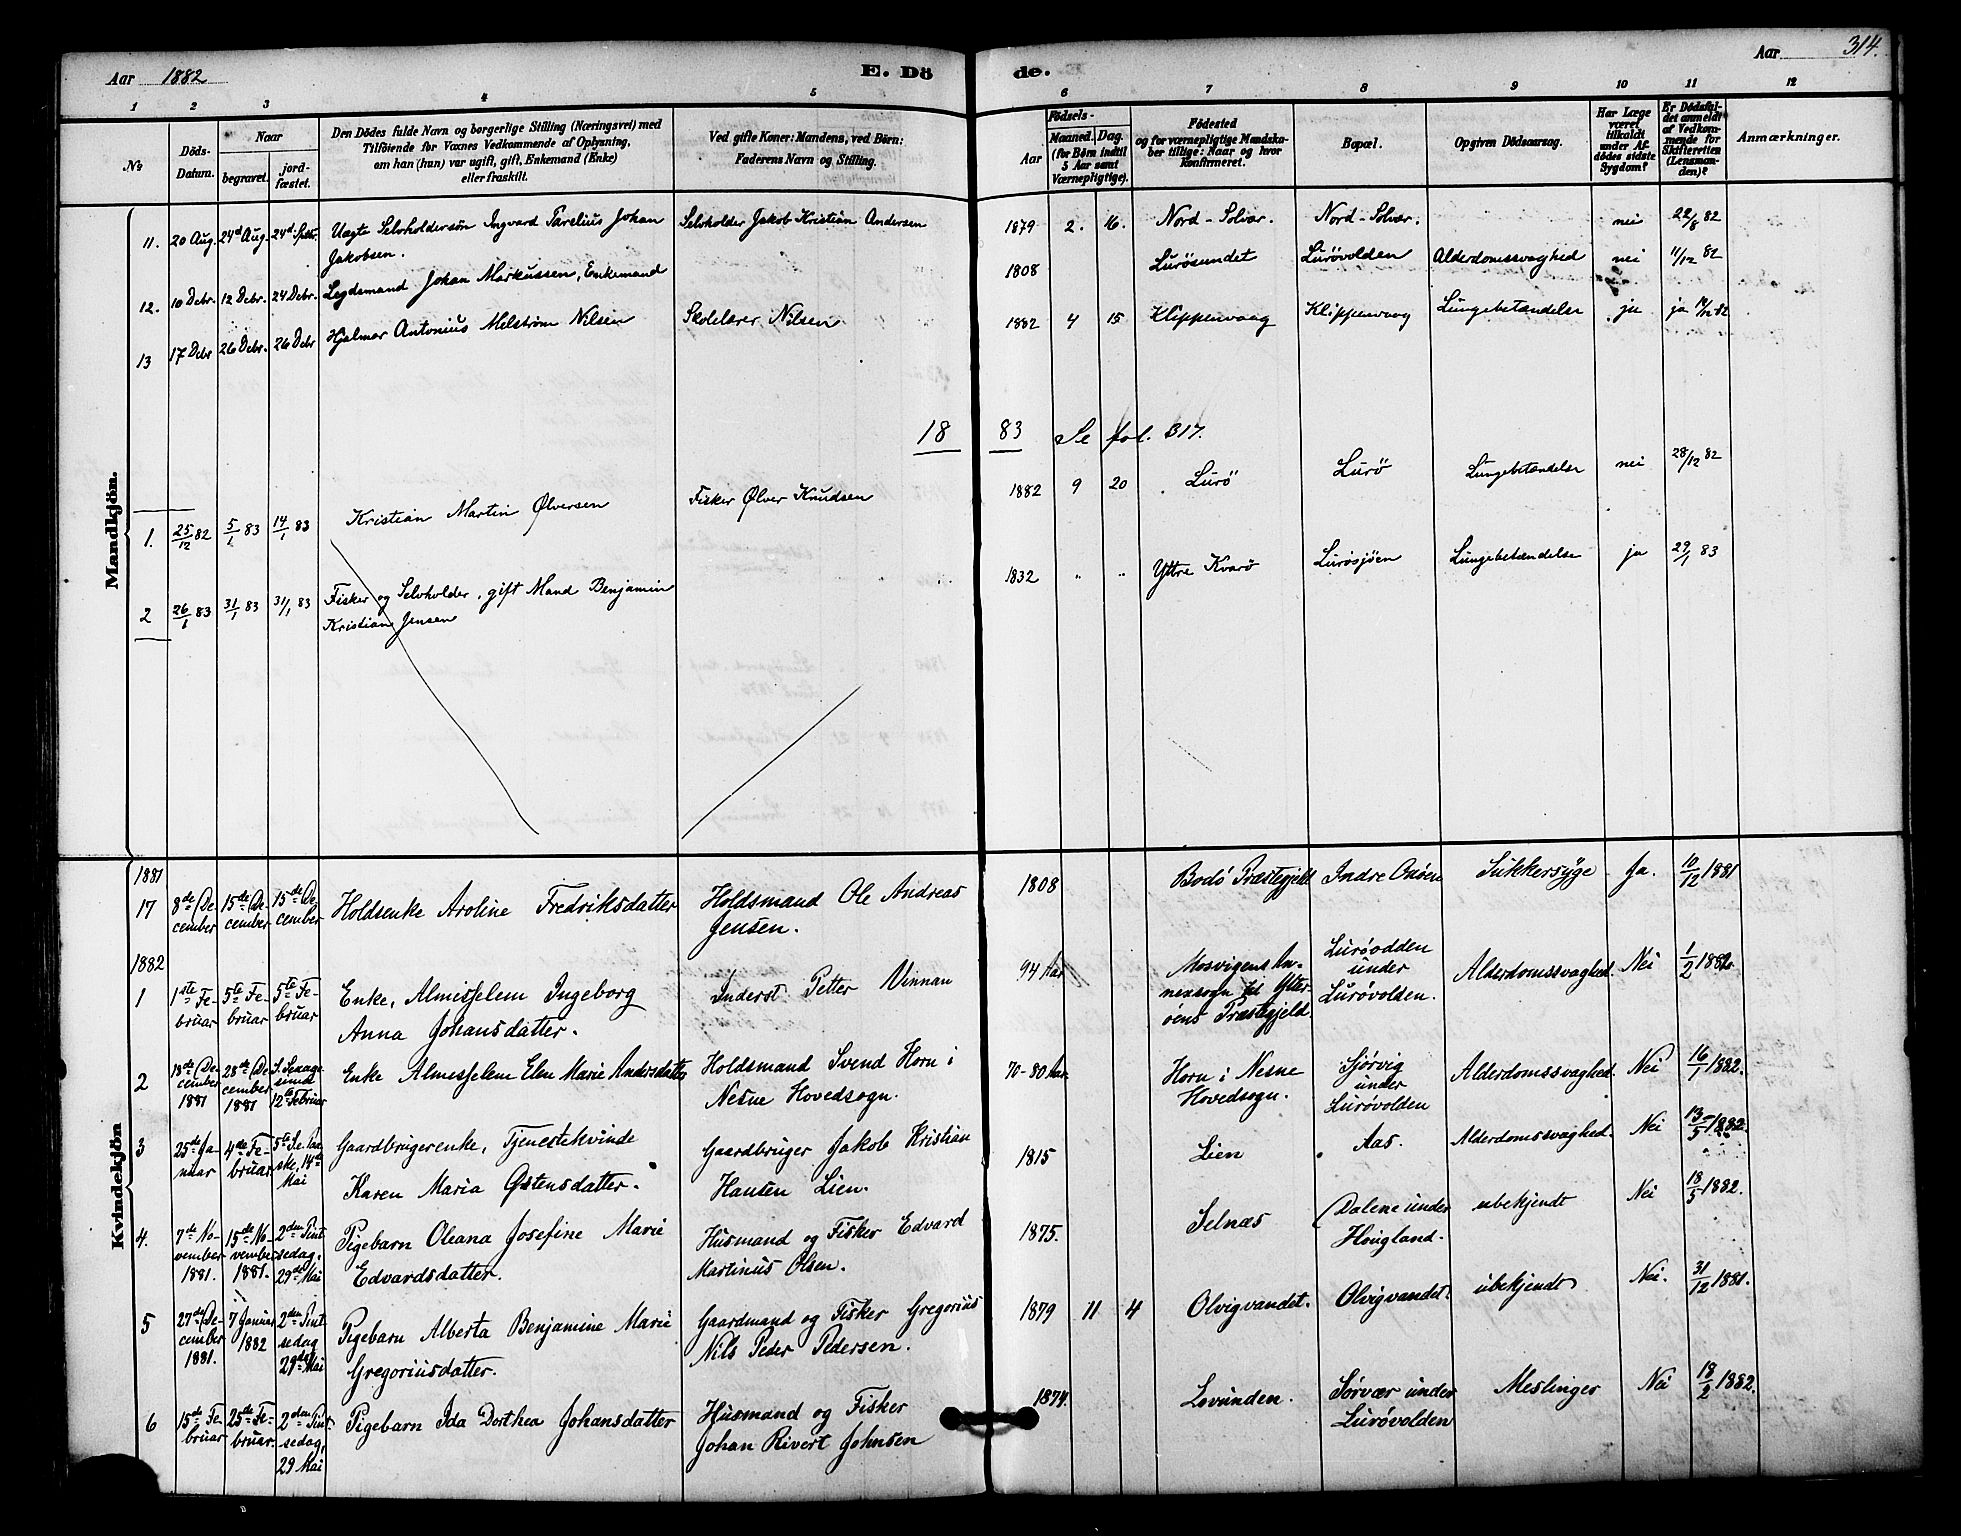 Aar 1882
E. Dö
de.
Aar
314.
1 2 3 4 5 6 7 8 9 10 11 12
No
Döds-
Datum.
Naar
begravet.
jord-
fæstet.
Den Dödes fulde Navn og borgerlige Stilling (Næringsvei) med
Tilföiende for Voxnes Vedkommende af Oplysning,
om han (hun) var ugift, gift, Enkemand (Enke)
eller fraskilt.
Ved gifte Koner: Mandens, ved Börn:
Faderens Navn og Stilling.
Födsels-
Aar
Maaned. Dag.
(for Börn indtil
5 Aar samt
Værnepligtige).
Födested
og for værnepligtige Mandska-
ber tillige: Naar og hvor
konfirmeret.
Bopæl.
Opgiven Dödsaarsag.
Har Læge
været
tilkaldt
under Af-
dödes sidste
Sygdom?
Er Dödsfal-
det anmeldt
af Vedkom-
mende for
Skifteretten
(Lensman-
den)?
Anmærkninger.
Mandkjön.
11. 20 Aug. 24d Aug. 24d Septr. Uægte Selvholdersön Ingvard Parelius Johan Selvholder Jakob Kristian Andersen 1879 2. 16. Nord-Solvær. Nord-Solvær. nei 22/8 82
Jakobsen.
12. 10 Debr. 12 Debr. 24 Debr. Legdsmand Johan Markussen, Enkemand 1808 Lurösundet Lurövolden Alderdomssvaghed nei 11/12 82
13 17 Debr 26 Debr. 26 Debr Hjalmar Antonius Melström Nilsen Skolelærer Nilsen 1882 4 15 Klippenvaag Klippenvaag Lungebetændelse ja ja 19/12 82
18 83 Se fol. 317.
1. 25/12 82 5/1 83 14/1 83 Kristian Martin Ølversen Fisker Ølver Knudsen 1882 9 20 Lurö Lurö Lungebetændelse nei 28/12 82
2 26/1 83 31/1 83 31/1 83 Fisker og Selvholder, gift Mand Benjamin 1832 " " Yttre Kvarö Lurösjöen Lungebetændelse ja 29/1 83
Kristian Jensen
Kvindekjön
1881
17 8de December 15de December 15de December Holdsenke Aroline Fredriksdatter Holdsmand Ole Andreas 1808 Bodö Præstegjeld Indre Onöen Sukkersyge Ja. 10/12 1881
Jensen.
1882
1 1ste Februar 5te Februar 5te Februar Enke, Almisselem Ingeborg Inderst Petter Vinnan 94 Aar Mosvigens An- Luröodden Alderdomssvaghed. Nei 1/2 1882
Anna Johansdatter. nexsogn til Ytter- under
öens Præstegjeld. Lurövolden.
2 18de December 1881 28de December 1881 S. Sexagesima 12te Februar Enke Almisselem Elen Marie Andersdatter Holdsmand Svend Horn i 70-80 Aar Horn i Nesne Sjörvig Alderdomssvaghed Nei 16/1 1882.
Nesne Hovedsogn. Hovedsogn. under
Lurövolden
3 25de Januar 4de Februar 5te S. e. Paaske, 14de Mai Gaardbrugerenke, Tjenestekvinde Gaardbruger Jakob Kristian 1815 Lien Aas. Alderdomssvaghed. Nei 13/5 1882.
Karen Maria Østensdatter. Hansen Lien.
4. 7de November 1881. 15de November 1881. 2den Pintsedag. 29de Mai Pigebarn Oleana Josefine Marie Husmand og Fisker Edvard 1875. Selnæs Dalene under ubekjendt Nei 18/5 1882.
Edvardsdatter. Martinus Olsen. Hougland.
5 27de December 1881. 7 Januar 1882 2den Pintsedag 29de Mai Pigebarn Alberta Benjamine Marie Gaardmand og Fisker Gregorius 1879 11 4 Olvigvandet. Olvigvandet. ubekjendt Nei. 31/12 1881.
Gregoriusdatter. Nils Peder Pedersen.
6 15de Februar 25de Februar 2den Pintsedag, 29 Mai Pigebarn Ida Dorthea Johansdatter Husmand og Fisker 1874. Lovunden. Sörvær under Meslinger Nei 18/2 1882.
Johan Rivert Johnsen Lurövolden